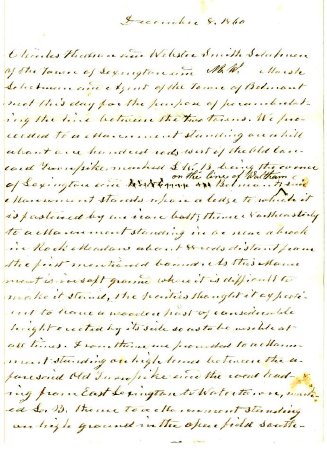 December 8, 1860
Charles Hudson and Webster Smith Selectmen
of the Town of Lexington and M. W. Marsh
Selectman and Agent of the Town of Belmont
met this day for the purpose of perambulat-
ing the line between the two towns. We pro-
ceeded to a Monument standing on a hill
about one hundred rods west of the Old Con-
cord Turnpike marked L. B. being the corner
on the line of Waltham
of Lexington and Belmont, and
Monument stands upon a ledge to which it
is fastened by an iron bolt; thence Eastwardly
to a Monument standing in or near a brook
in Rock Meadow about rods distant from
the first mentioned bound. As this Monu-
ment is in soft ground where it is difficult to
make it stand, the parties thought it expedi-
ent to have a wooden post of considerable
height erected by its side so as to be visible at
all times. From thence we proceeded to a Monu-
ment standing on high land between the a-
foresaid Old Turnpike and the road lead-
ing from East Lexington to Watertown, mark-
ed L. B. thence to a Monument standing
on high ground in the open field south-